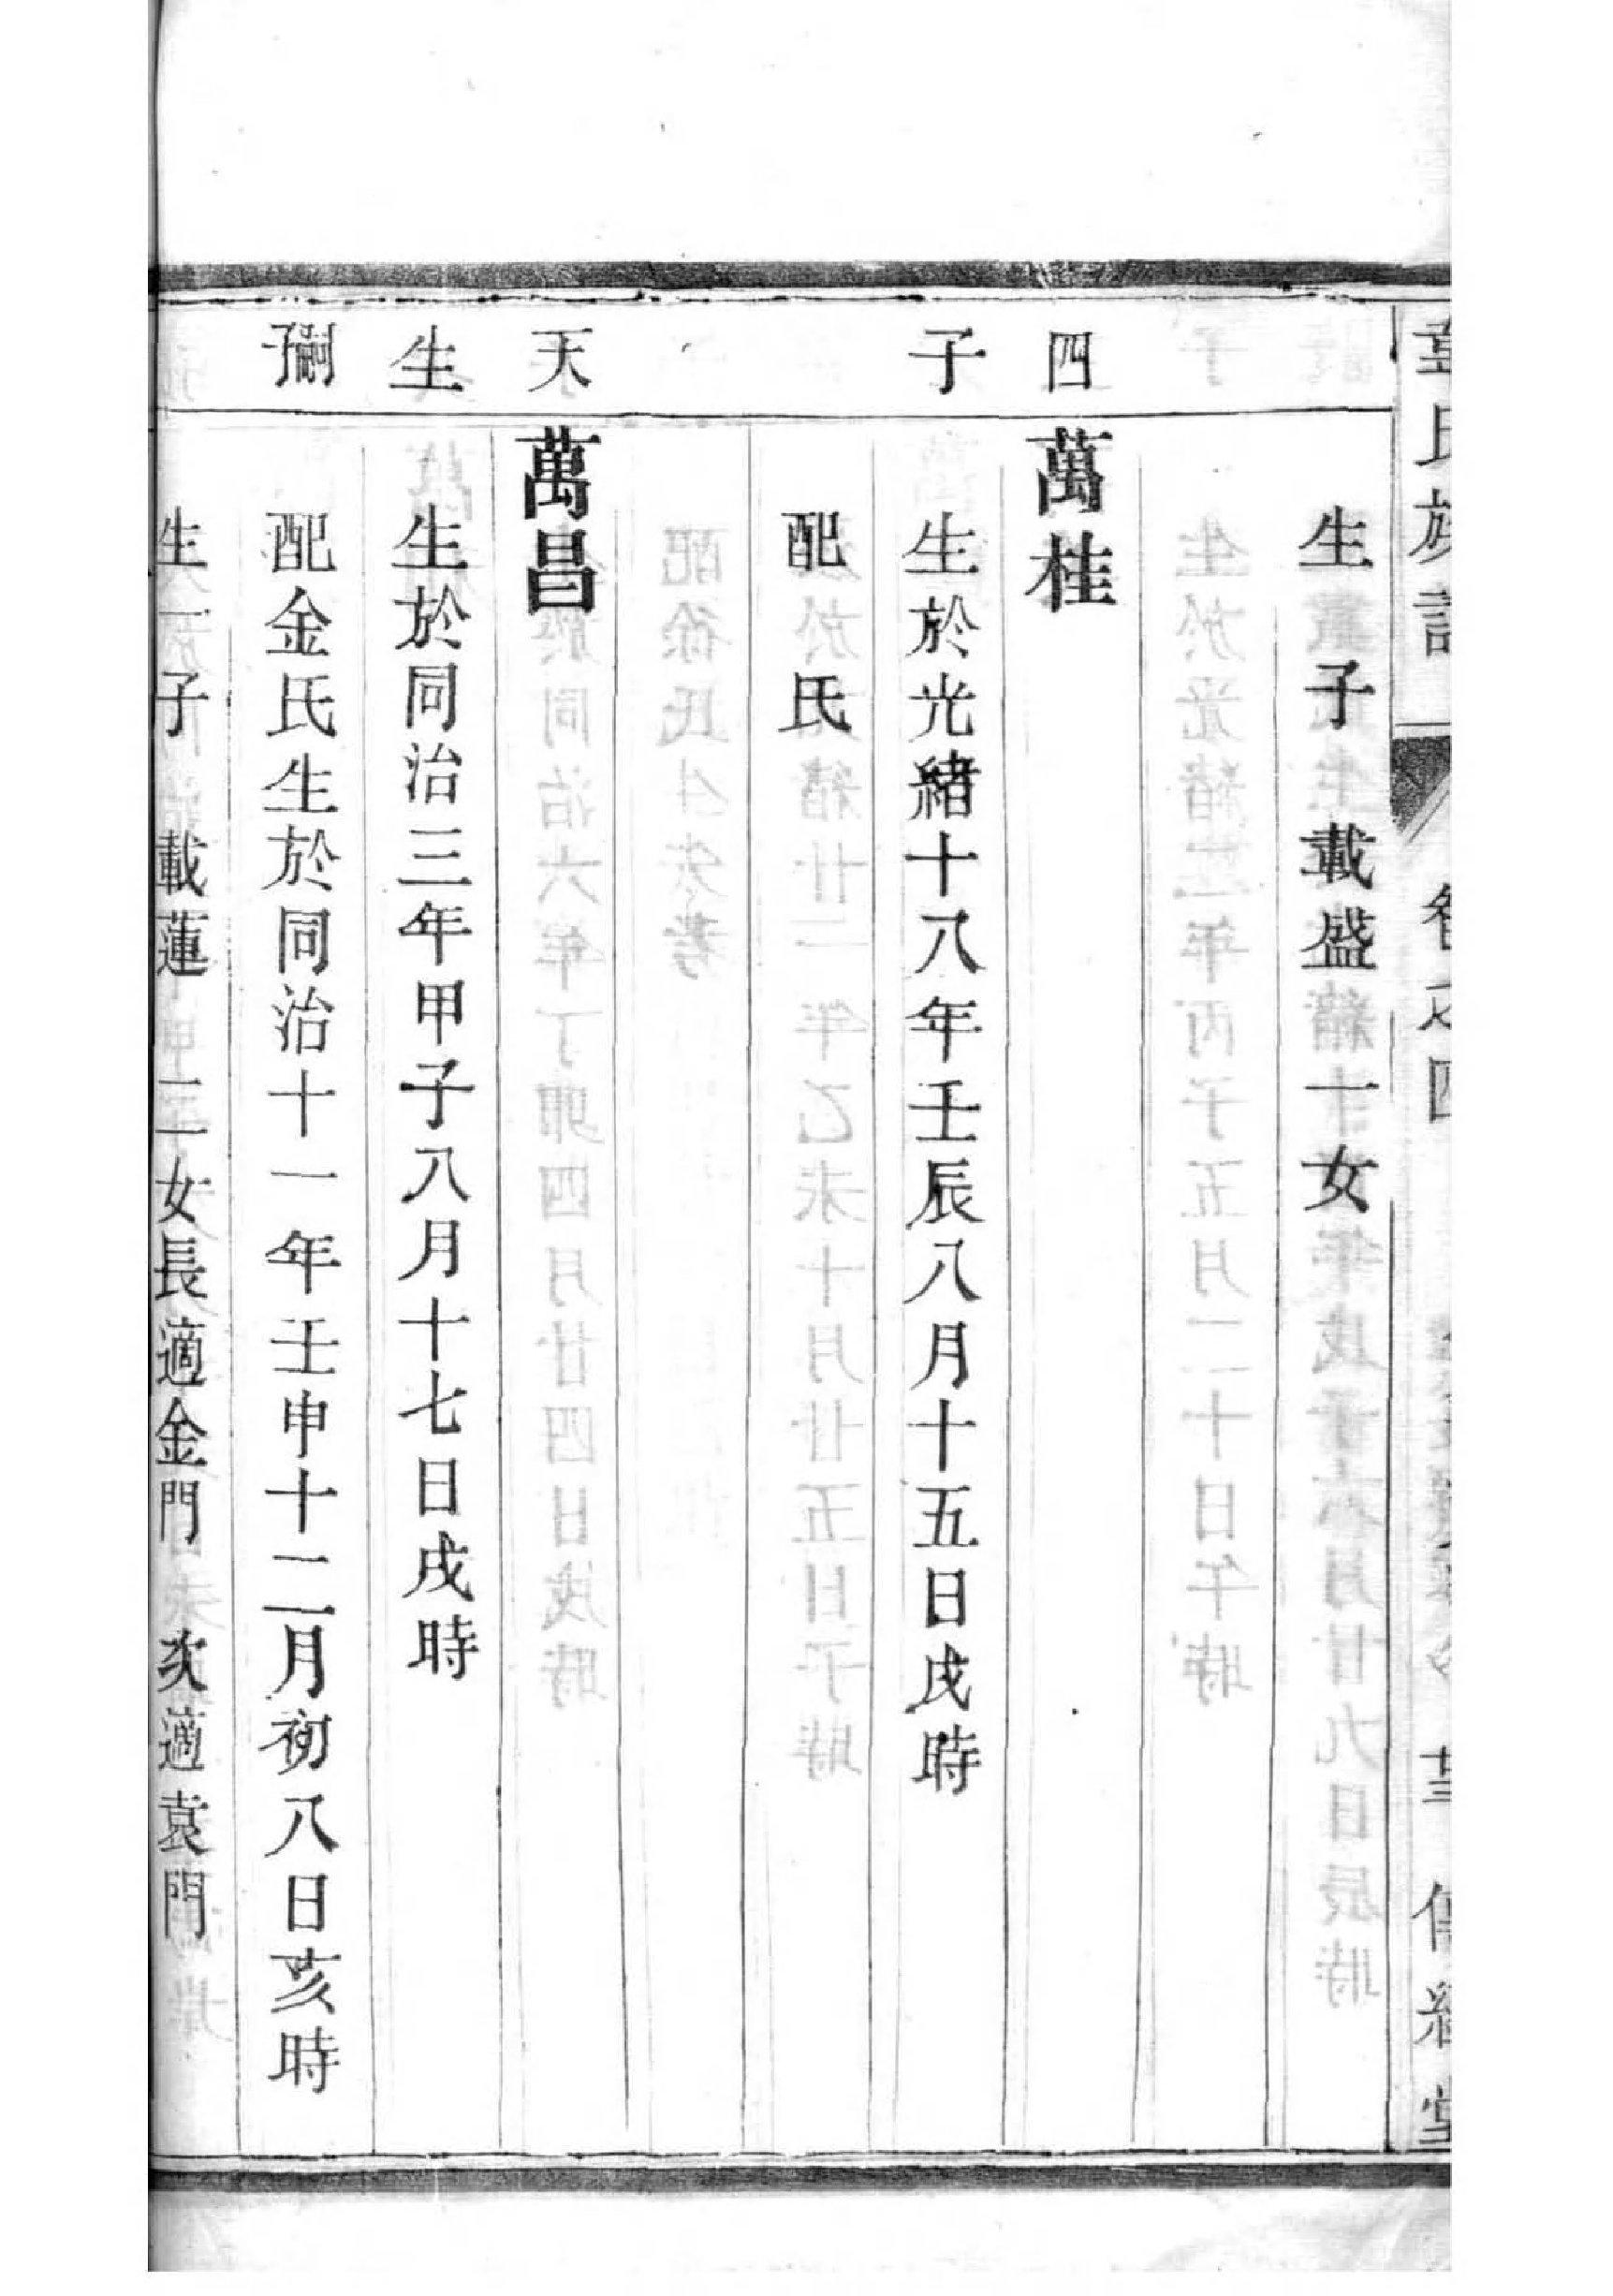 氏族譜 卷之四
生 子 載盛 一女
四 萬桂
子 生於光緒十八年壬辰八月十五日戌時
配 氏
天 萬昌
生 生於同治三年甲子八月十七日戌時
嗣子 配金氏生於同治十一年壬申十二月初八日亥時
生一子 載蓮 二女長適金門 次適袁門